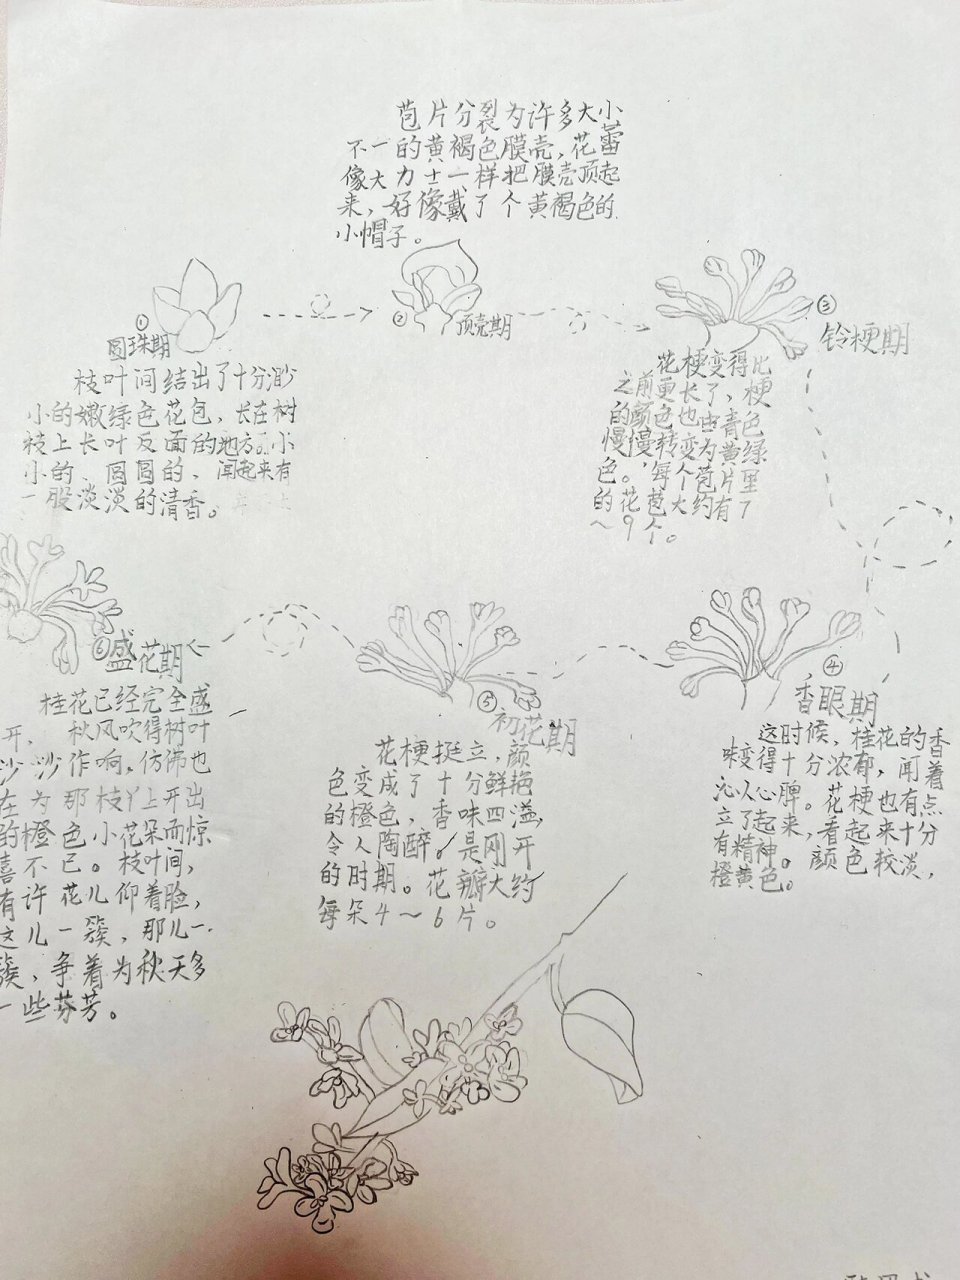 苞片分裂为许多大小
不一的黄褐色膜壳，花蕾
像大力士一样把膜壳顶起
来，好像戴了个黄褐色的
小帽子。
①
圆珠期
枝叶间结出了十分渺
小的嫩绿色花包，长在树
枝上长叶反面的地方。小
小的、圆圆的，闻起来有
一股淡淡的清香。
②
顶壳期
③
铃梗期
花梗变得比
之前更长了，梗
的颜色也由青色
慢慢转变为黄绿
色。每个苞片里
的花苞大约有7
～9个。
④
香眼期
这时候，桂花的香
味变得十分浓郁，闻着
沁人心脾。花梗也有点
立了起来，看起来十分
有精神。颜色较淡，
橙黄色。
⑤
初花期
花梗挺立，颜
色变成了十分鲜艳
的橙色，香味四溢，
令人陶醉。是刚开
的时期。花瓣大约
每朵4～6片。
⑥盛花期
桂花已经完全盛
开，秋风吹得树叶
沙沙作响，仿佛也
在为那枝丫上开出
的橙色小花朵而惊
喜不已。枝叶间，
有许花儿仰着脸，
这儿一簇，那儿一
簇，争着为秋天多
一些芬芳。